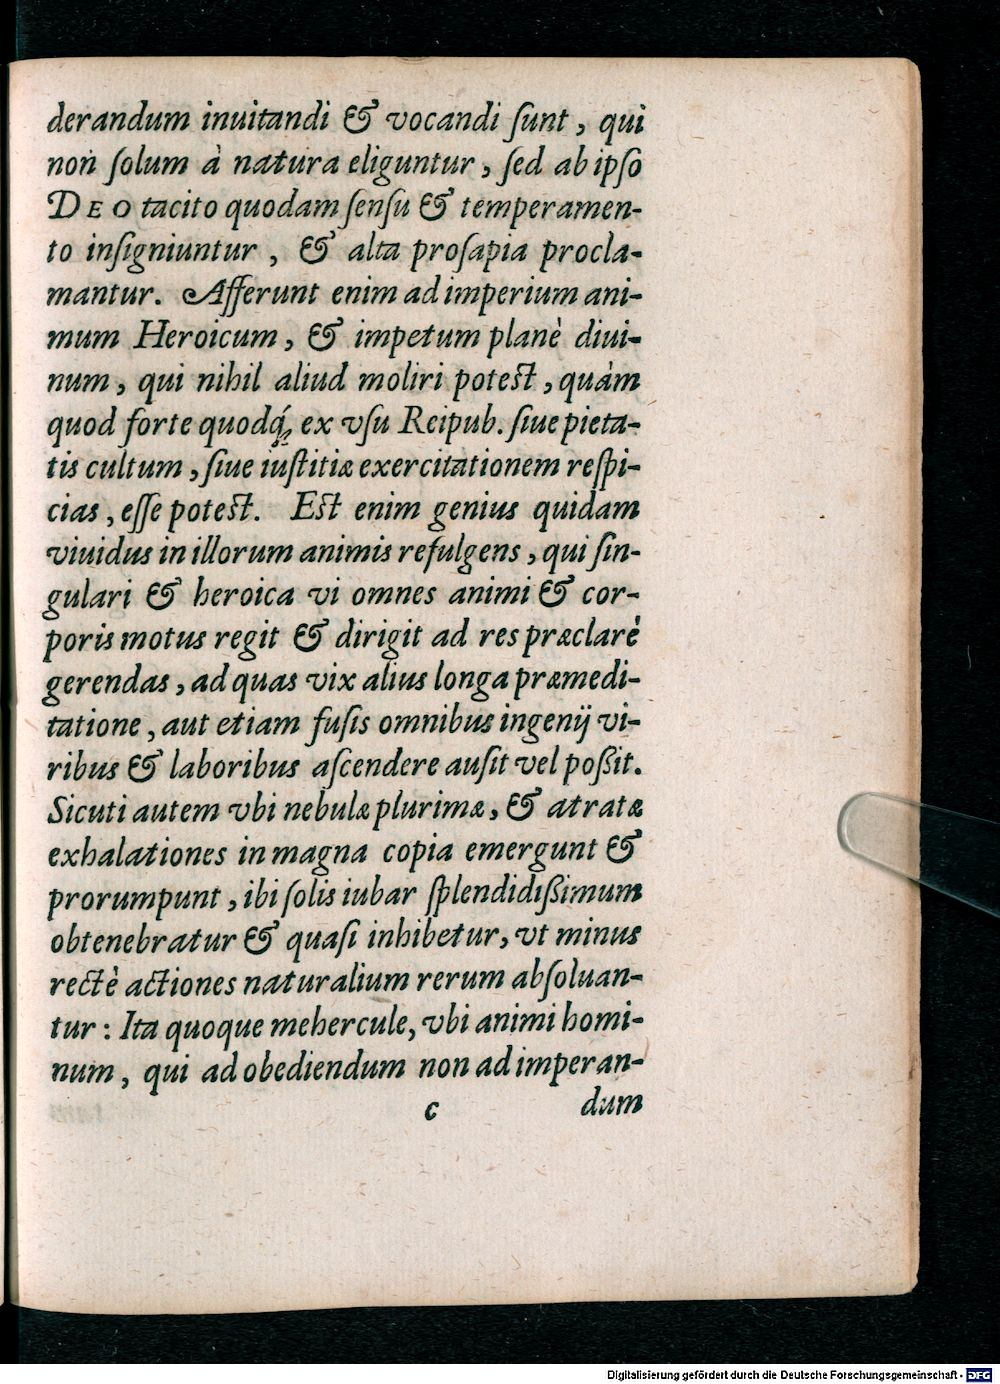 derandum inuitandi & vocandi ſunt, quì
non ſolum à natura eliguntur, ſed ab ipſo
DEO tacito quodam ſenſu & temperamen-
to inſigniuntur, & alta proſapia procla-
mantur. Afferunt enim ad imperium ani-
mum Heroicum, & impetum planè diui-
num, qui nihil aliud moliri poteſt, quàm
quod forte quodq́; ex vſu Reipub. ſiue pieta-
tis cultum, ſiue iuſtitiæ exercitationem reſpi-
cias, eſſe poteſt. Eſt enim genius quidam
viuidus in illorum animis refulgens, qui ſin-
gulari & heroica vi omnes animi & cor-
poris motus regit & dirigit ad res præclarè
gerendas, ad quas vix alius longa præmedi-
tatione, aut etiam fuſis omnibus ingenij vi-
ribus & laboribus aſcendere auſit vel poßit.
Sicuti autem vbi nebulæ plurimæ, & atratæ
exhalationes in magna copia emergunt &
prorumpunt, ibi ſolis iubar ſplendidißimum
obtenebratur & quaſi inhibetur, vt minus
rectè actiones naturalium rerum abſoluan-
tur: Ita quoque mehercule, vbi animi homi-
num, qui ad obediendum non ad imperan-
c dum
Digitalisierung gefördert durch die Deutsche Forschungsgemeinschaft - DFG